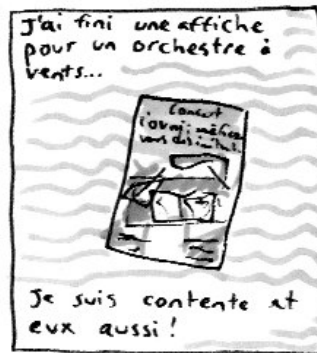 J'ai fini une affiche
pour un orchestre à
vents...
Concert
Je suis contente et
eux aussi !